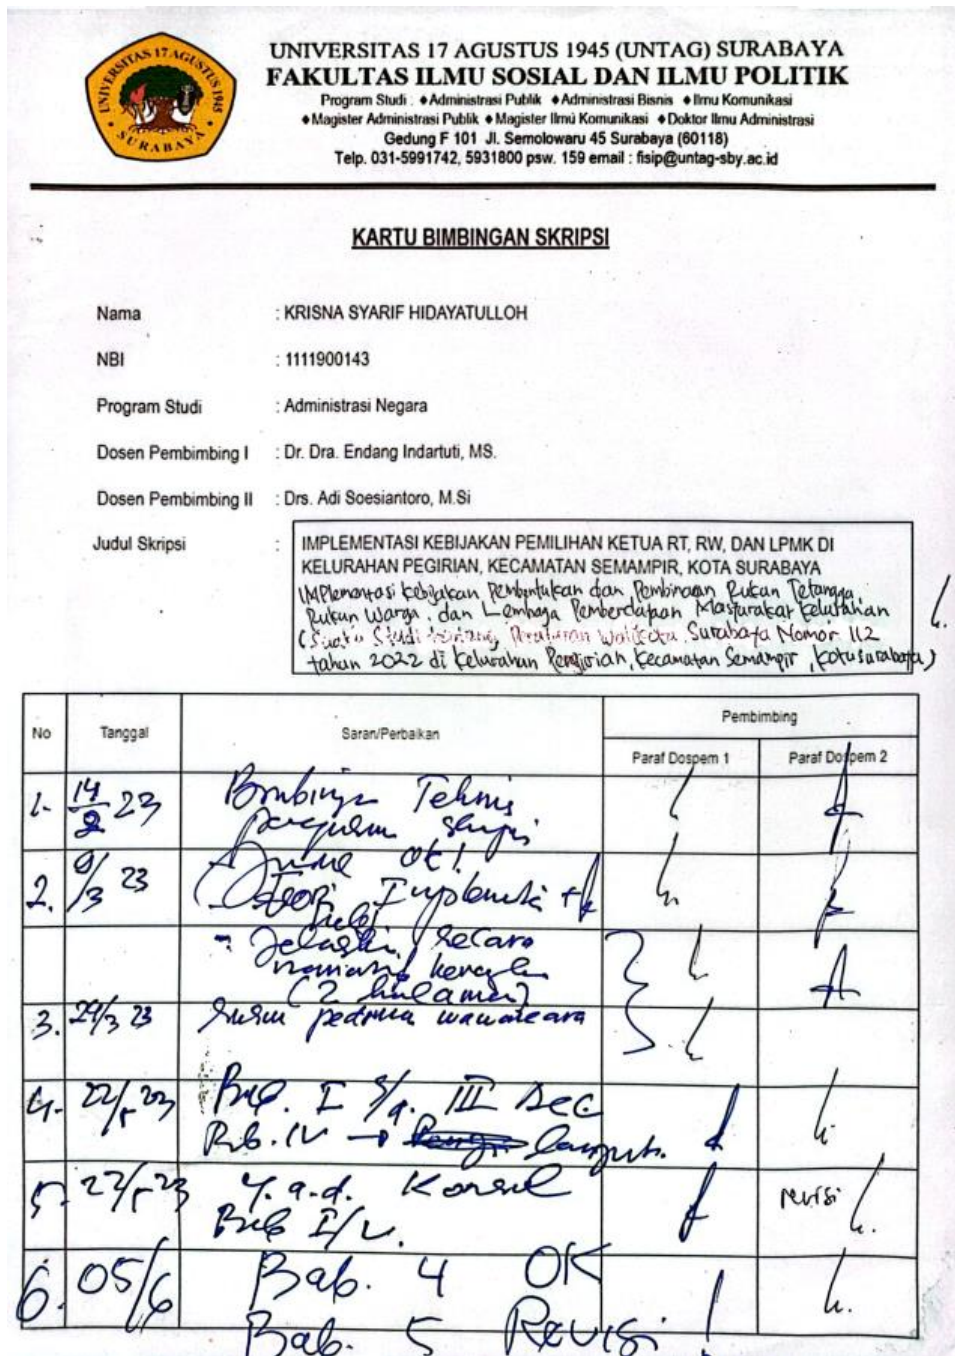 UNIVERSITAS 17 AGUSTUS 1945
SURABAYA
UNIVERSITAS 17 AGUSTUS 1945 (UNTAG) SURABAYA
FAKULTAS ILMU SOSIAL DAN ILMU POLITIK
Program Studi : ♦Administrasi Publik ♦Administrasi Bisnis ♦Ilmu Komunikasi
♦Magister Administrasi Publik ♦Magister Ilmu Komunikasi ♦Doktor Ilmu Administrasi
Gedung F 101 Jl. Semolowaru 45 Surabaya (60118)
Telp. 031-5991742, 5931800 psw. 159 email : fisip@untag-sby.ac.id
KARTU BIMBINGAN SKRIPSI
Nama : KRISNA SYARIF HIDAYATULLOH
NBI : 1111900143
Program Studi : Administrasi Negara
Dosen Pembimbing I : Dr. Dra. Endang Indartuti, MS.
Dosen Pembimbing II : Drs. Adi Soesiantoro, M.Si
Judul Skripsi : IMPLEMENTASI KEBIJAKAN PEMILIHAN KETUA RT, RW, DAN LPMK DI
KELURAHAN PEGIRIAN, KECAMATAN SEMAMPIR, KOTA SURABAYA
Implementasi kebijakan Pembentukan dan Pembinaan Rukun Tetangga,
Rukun Warga, dan Lembaga Pemberdayaan Masyarakat kelurahan
(Suatu Studi tentang Peraturan Walikota Surabaya Nomor 112
tahun 2022 di kelurahan Pengirian, kecamatan Semampir, kota surabaya)
No Tanggal Saran/Perbaikan Pembimbing
Paraf Dospem 1 Paraf Dospem 2
1. 23 Teknis
2. 9/3 23 OK!
Teori
- Secara
(2 halaman)
3. 29/3 23 Susun wawancara
4. Bab. I s/d. III Acc
Bab. IV →
5. y.a.d. Konsul
Bab
revisi
6. 05/6 Bab. 4 OK
Bab. 5 Revisi